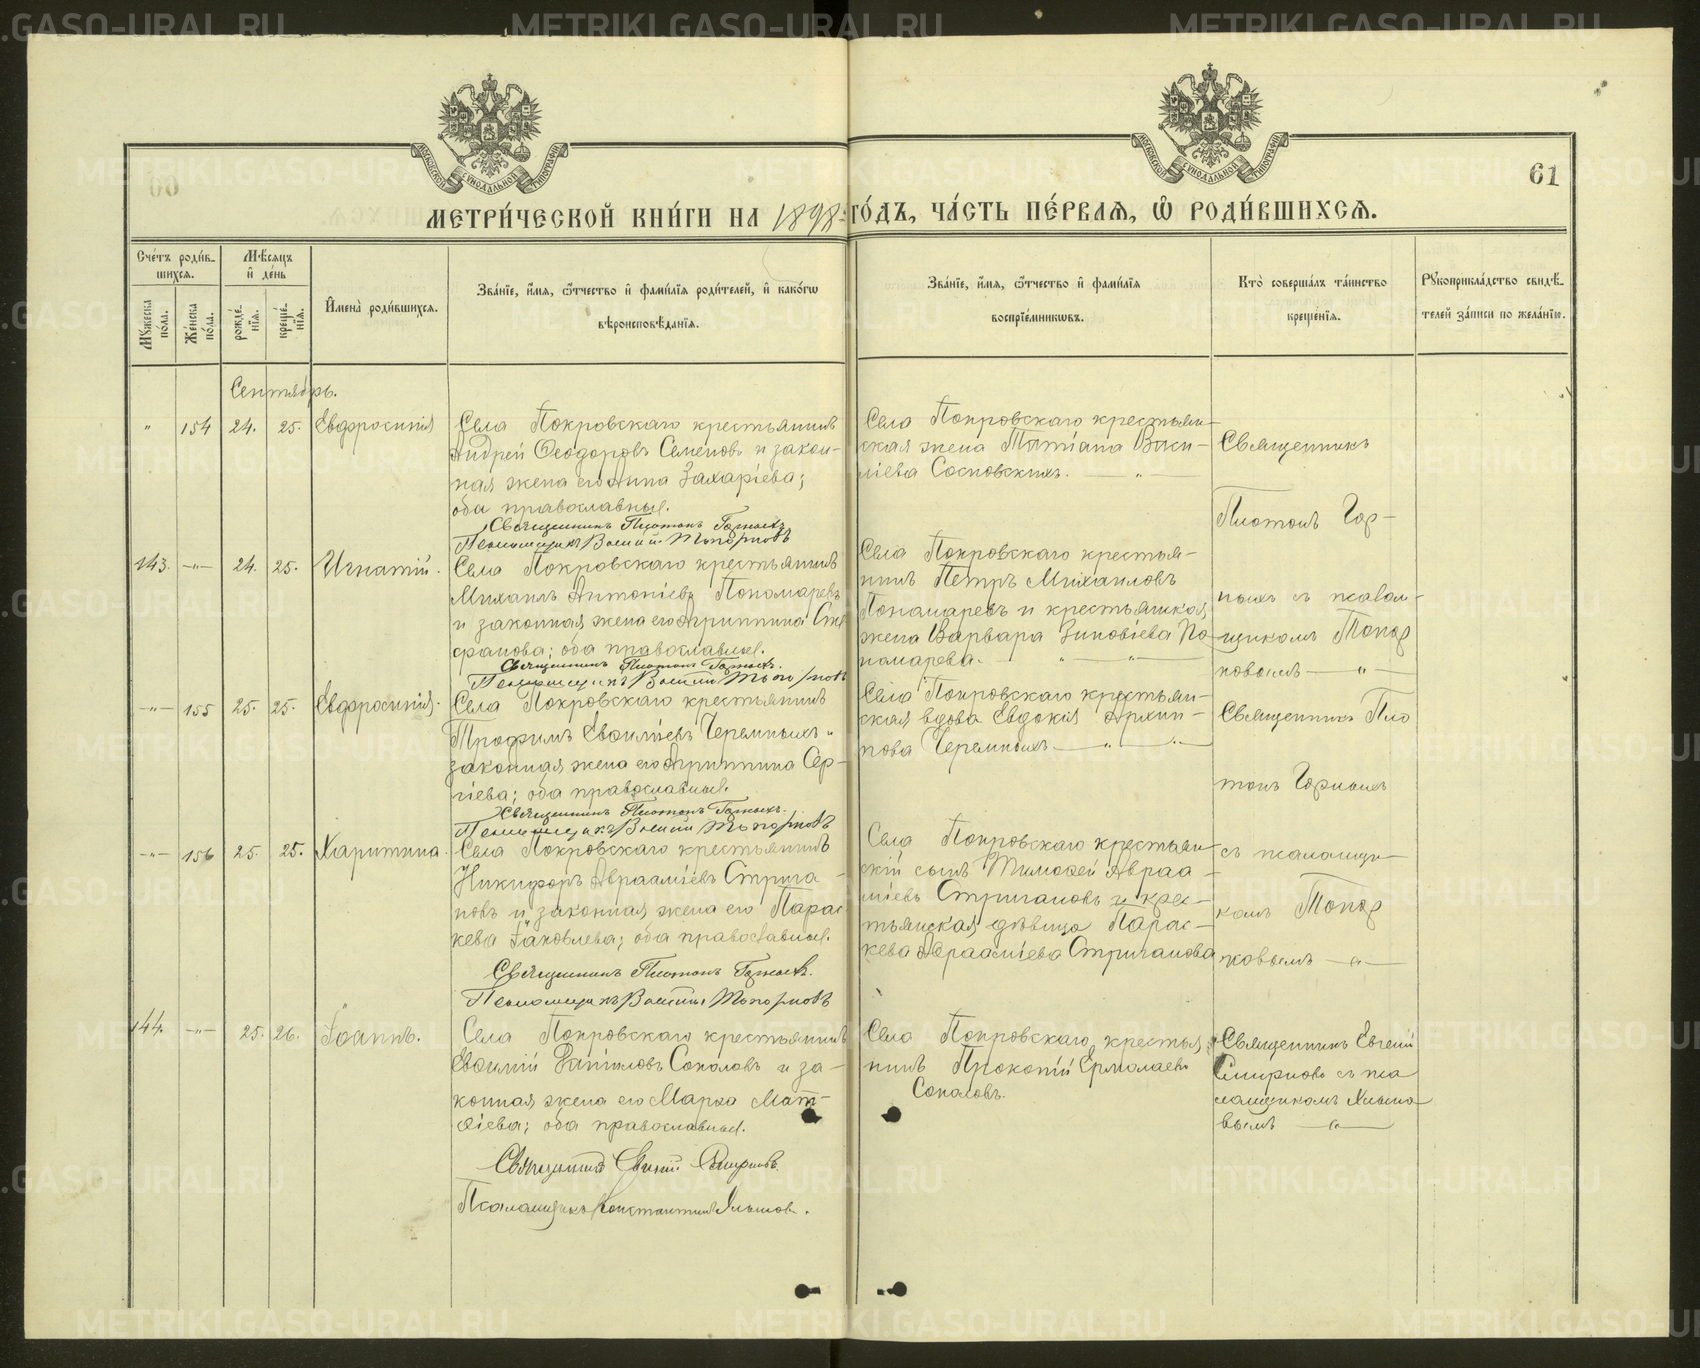 METRIKI.GASO-URAL.RU
МОСКОВСКОЙ СУНОДАЛЬНОЙ ТИПОГРАФІИ
МОСКОВСКОЙ СУНОДАЛЬНОЙ ТИПОГРАФІИ
61
МЕТРИ́ЧЕСКОЙ КНИ́ГИ НА 1898 ГО́ДЪ, ЧА́СТЬ ПЕ́РВАЯ, Ѡ҆ РОДИ́ВШИХСЯ.
Сче́тъ роди́в-
шихся.
Му́жеска по́ла.
Же́нска по́ла.
Мѣ́сяцъ
и҆ де́нь
рожде́-
нїя.
креще́-
нїя.
И҆мена̀ роди́вшихся.
Зва́нїе, и҆́мя, ѻ҆́тчество и҆ фами́лїя роди́телей, и҆ како́гѡ
вѣроисповѣ́данїя.
Зва́нїе, и҆́мя, ѻ҆́тчество и҆ фами́лїя
воспрїе́мниковъ.
Кто̀ соверша́лъ та́инство
креще́нїя.
Рꙋкоприкла́дство свидѣ́-
телей за́писи по жела́нїю.
Сентябрь.
" 154 24. 25. Евфросинія
Села Покровскаго крестьянинъ
Андрей Ѳеодоровъ Семеновъ и закон-
ная жена его Анна Захаріева;
оба православные.
Священникъ Платонъ Горныхъ
Псаломщикъ Василій Топорковъ
Села Покровскаго крестьян-
ская жена Татіана Васи-
ліева Сосновскихъ. — " —
Священникъ
Платонъ Гор-
ныхъ съ псалом-
щикомъ Топор
ковымъ — " —
143. — " — 24. 25. Игнатій.
Села Покровскаго крестьянинъ
Михаилъ Антоніевъ Пономаревъ
и законная жена его Агриппина Сте
фанова; оба православные.
Священникъ Платонъ Горныхъ.
Псаломщикъ Василій Топорковъ
Села Покровскаго крестья-
нинъ Петръ Михаиловъ
Пономаревъ и крестьянская
жена Варвара Зиновіева По
номарева. — " — " —
— " — 155 25. 25. Евфросинія.
Села Покровскаго крестьянинъ
Трофимъ Евсиліевъ Черемныхъ и
законная жена его Агриппина Сер-
гіева; оба православные.
Священникъ Платонъ Горныхъ.
Псаломщикъ Василій Топорковъ
Села Покровскаго крестьян-
ская вдова Евдокія Архип-
пова Черемныхъ. — " — " —
Священникъ Пла
тонъ Горныхъ
съ псаломщи-
комъ Топор
ковымъ — " —
— " — 156 25. 25. Харитина.
Села Покровскаго крестьянинъ
Никифоръ Авраамієвъ Стрига-
новъ и законная жена его Парас
кева Іаковлева; оба православные.
Священникъ Платонъ Горныхъ.
Псаломщикъ Василій Топорковъ
Села Покровскаго крестьян-
скій сынъ Тимоѳей Авраа-
міевъ Стригановъ и крес-
тьянская дѣвица Парас-
кева Авраамiева Стриганова
144. — " — 25. 26. Іоаннъ.
Села Покровскаго крестьянинъ
Даніиловъ Соколовъ и за-
конная жена его Марѳа Мат-
ѳіева; оба православные.
Священникъ Евгеній Смирновъ
Псаломщикъ Константинъ
Села Покровскаго крестья-
нинъ Прокопій Ермолаевъ
Соколовъ.
Священникъ Евгеній
Смирновъ съ пса
ломщикомъ
вымъ — " —